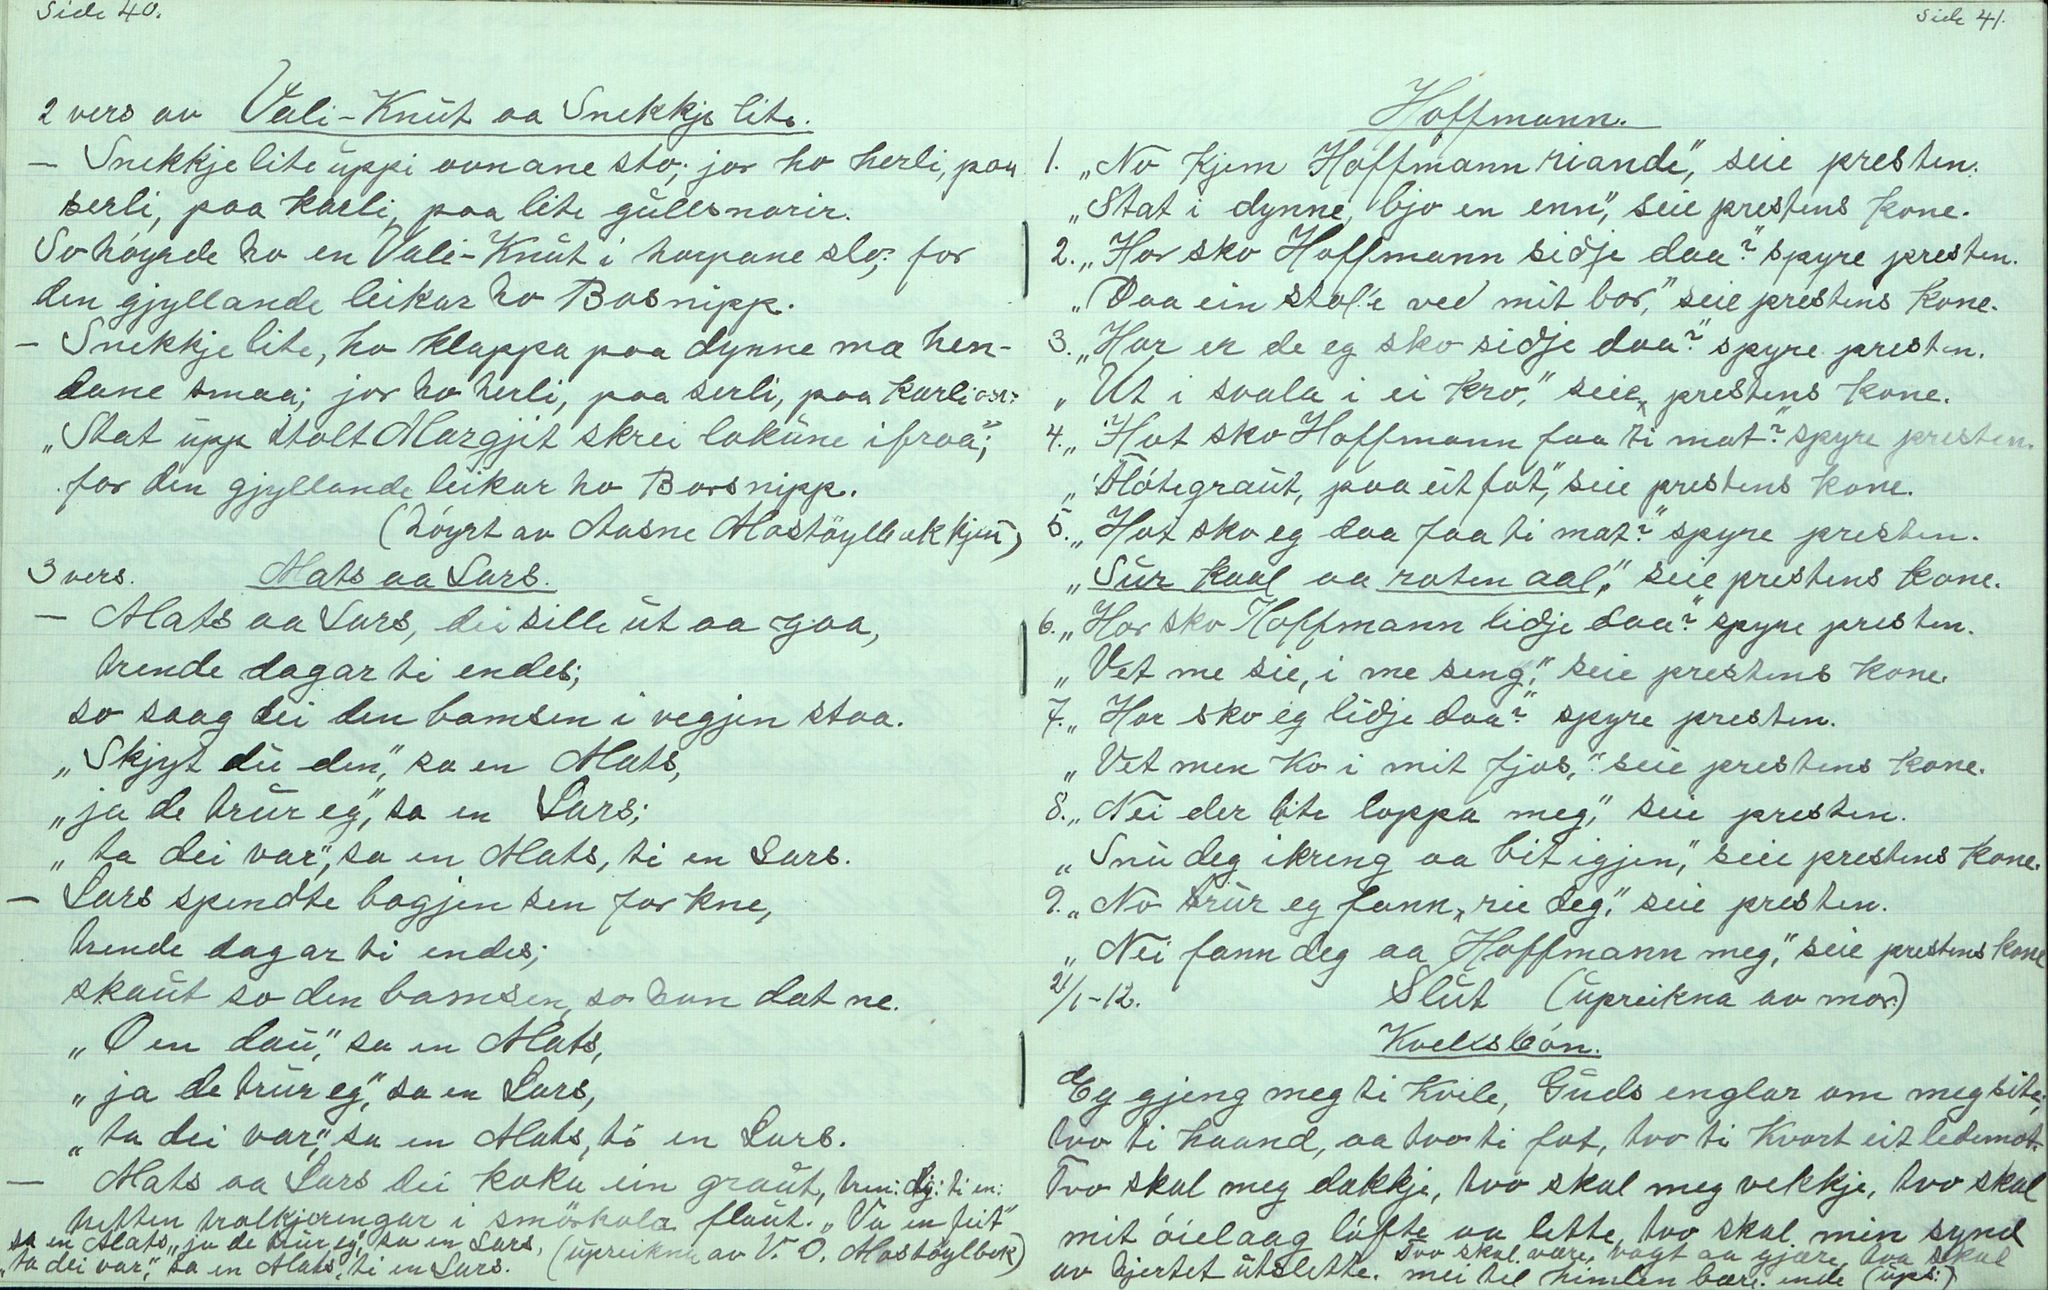 Side 40.
2 vers av Vali-Knut aa Snekkje lite.
— Snekkje lite uppi ovnane sto; jor ho herli, paa
serli, paa karli, paa lite gullsnorir.
So höyrde ho en Vali-Knut i harpane slo; for
den gjyllande leikar ho Bosnipp.
— Snekkje lite, ho klappa paa dynne mæ hen-
dane smaa; jor ho herli, paa serli, paa karli osv:
„Stat upp stolt Margjit skrei lokune ifraa";
for den gjyllande leikar ho Bosnipp.
(höyrt av Aasne Mostöylbakkjen)
3 vers. Mats aa Lars.
— Mats aa Lars, dei sille ut aa gaa,
trende dagar ti endes;
so saag dei den bamsen i vegjen staa.
„Skjyt du den", sa en Mats,
„ja de trur eg", sa en Lars;
„ta dei var", sa en Mats, ti en Lars.
— Lars spendte bogjen sen for kne,
trende dagar ti endes;
skaut so den bamsen, so han dat ne.
„O en dau", sa en Mats,
„ja de trur eg", sa en Lars,
„ta dei var", sa en Mats, ti en Lars.
— Mats aa Lars dei koka ein graut, tren: dg: ti en:
tretten trolkjeringar i smörkola flaut. „Va en feit"
sa en Mats „ja de trur eg", sa en Lars, (upreikna av V. O. Mostöylbek)
„ta dei var", sa en Mats, ti en Lars.
Side 41.
Hoffmann.
1. „No kjem Hoffmann riande", seie presten.
„Stat i dynne, bjo en enn", seie prestens kone.
2. „Hor sko Hoffmann sidje daa?" spyre presten.
„Paa ein stol'e ved mit bor," seie prestens kone.
3. „Hor er de eg sko sidje daa?" spyre presten.
„Ut i svala i ei kro," seie prestens kone.
4. „Hot sko Hoffmann faa ti mat?" spyre presten.
„Flötegraut, paa eit fat", seie prestens kone.
5. „Hot sko eg daa faa ti mat?" spyre presten.
„Sur kaal aa roten aal," seie prestens kone.
6. „Hor sko Hoffmann lidje daa?" spyre presten.
„Vet me sie, i me seng", seie prestens kone.
7. „Hor sko eg lidje daa?" spyre presten.
„Vet men ko i mit fjos," seie prestens kone.
8. „Nei der bite loppa meg," seie presten.
„Snu deg ikring aa bit igjen," seie prestens kone.
9. „No trur eg fann, rie deg", seie presten.
„Nei fann deg aa Hoffmann meg", seie prestens kone
21/1-12. Slut (upreikna av mor.)
Kveldsbön.
Eg gjeng meg ti kvile, Guds englar om meg site;
tvo ti haand, aa tvo ti fot, tvo ti kvart eit ledemot.
Tvo skal meg dekkje, tvo skal meg vekkje, tvo skal
mit öielaag löfte aa lette, tvo skal min synd
av hjertet utslette. Tvo skal være, vagt aa gjære, tvo skal
mei til himlen bære. ende (ups:)